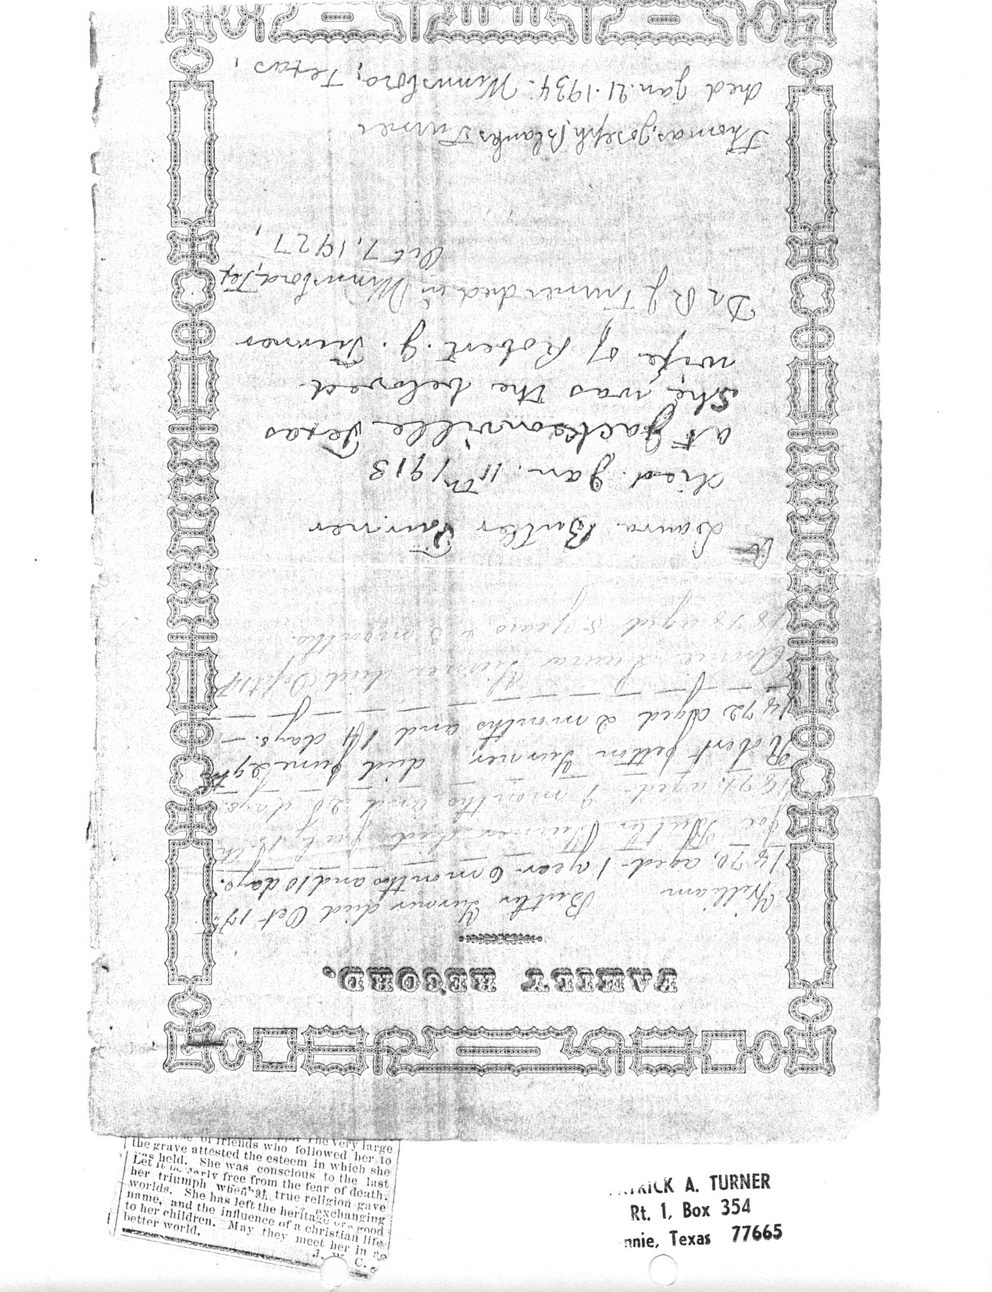 FAMILY RECORD.
William Butler Turner died Oct 17th
1870, aged 1 year 6 months and 10 days.
Joe Butler Turner died July 13th
1871, aged 9 months and 20 days.
Robert Turner, died June 29th
1872 aged 2 months and 14 days.
Annie Laura Turner died Sept 17
1878 aged 5 years & 3 months.
Laura Butler Turner
died Jan. 11th 1913
at Jacksonville Texas
She was the beloved
wife of Robert J. Turner
Dr R J Turner died in Winnsboro, Tex
Oct 7, 1927,
Thomas Joseph Blanks Turner
died Jan. 21. 1934. Winnsboro, Texas,
of friends who followed her to
the grave attested the esteem in which she
was held. She was conscious to the last
free from the fear of death.
her triumph true religion gave
worlds. She has left the heritage good
name, and the influence of a christian life
to her children. May they meet her in a
better world.
J. W. C.
PATRICK A. TURNER
Rt. 1, Box 354
nnie, Texas 77665